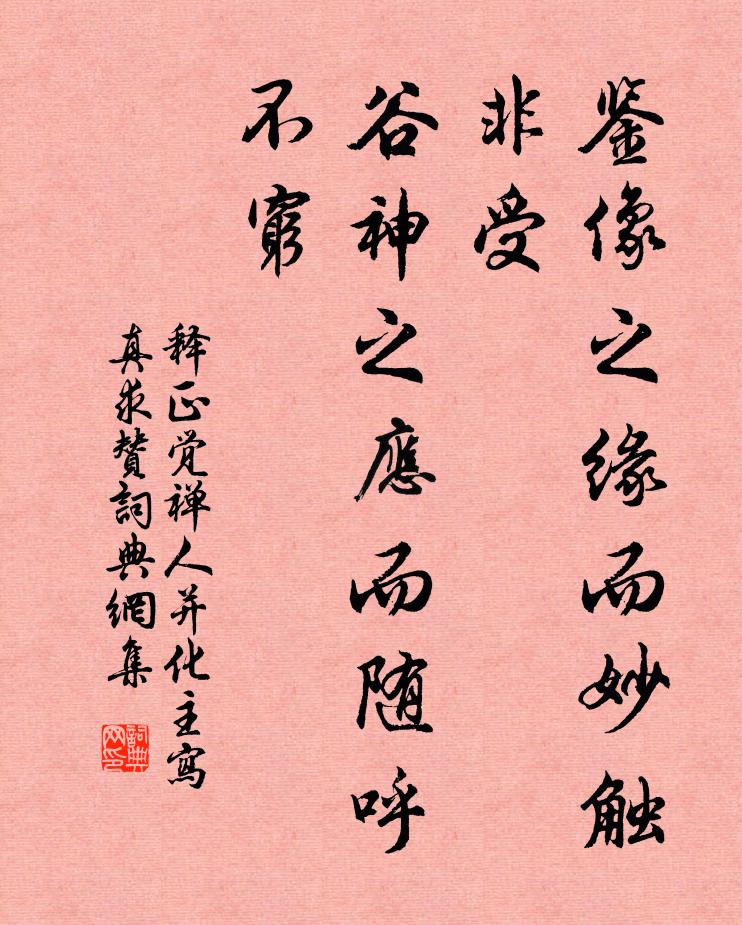 鉴像之缘而妙触
非受
谷神之應而随呼
不窮
释正觉禅人并化主寫
真求贊詞典網集
詞典
网印